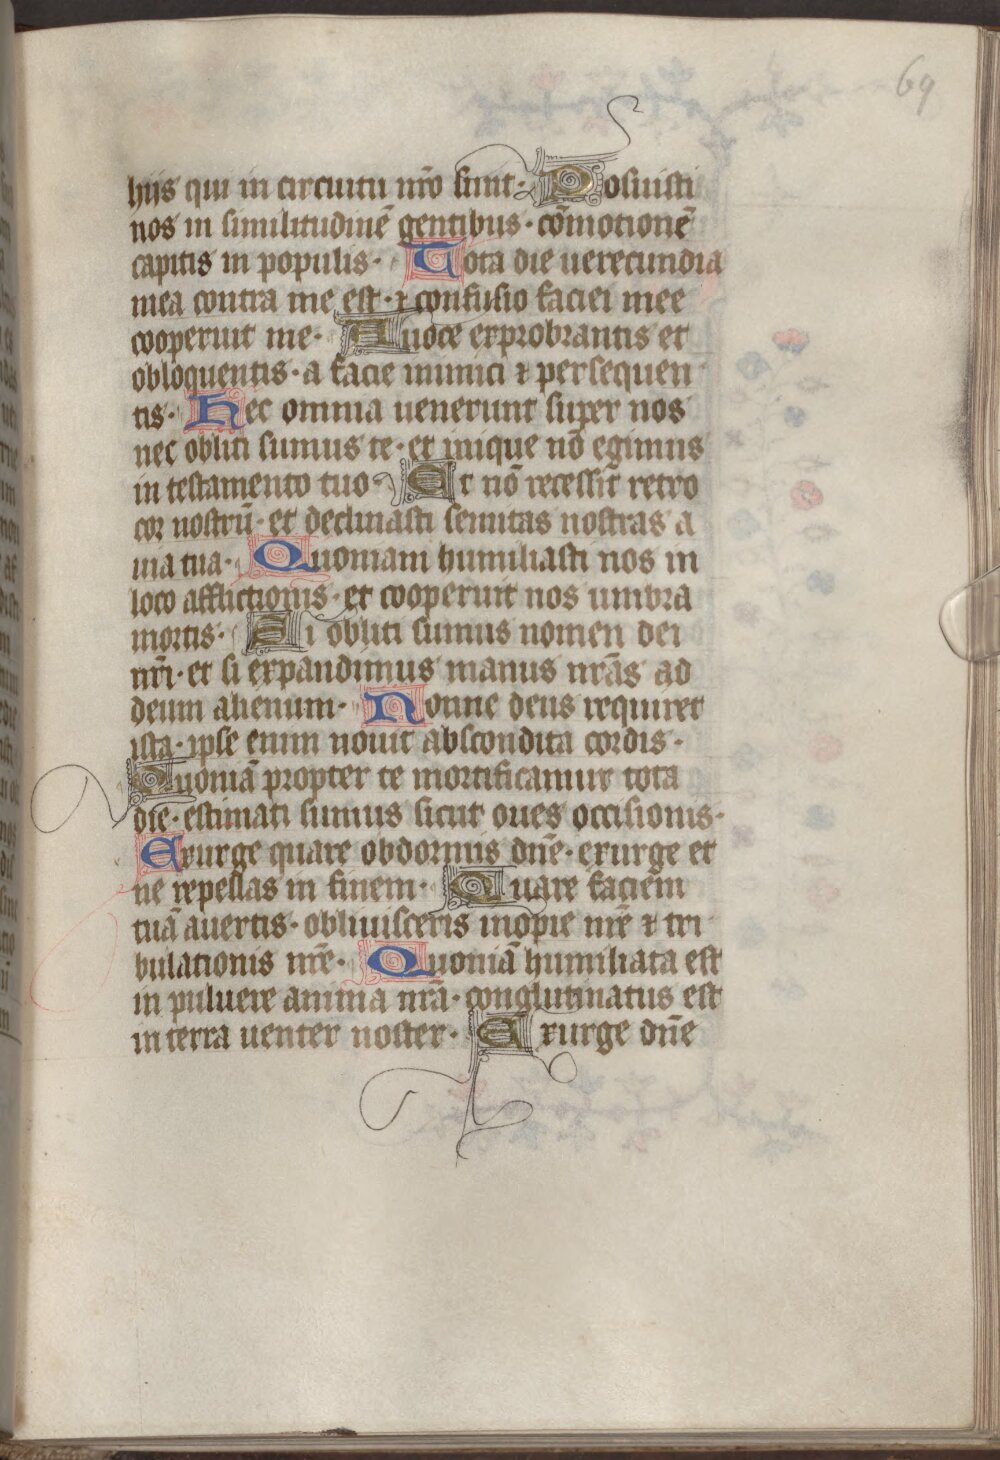 69
hiis qui in circuitu nr̄o sunt· Posuisti
nos in similitudinē gentibus· cōmotionē
capitis in populis· Tota die uerecundia
mea contra me est· ⁊ confusio faciei mee
cooperuit me· A uoce exprobrantis et
obloquentis· a facie inimici ⁊ persequen
tis· Hec omnia uenerunt super nos
nec obliti sumus te· et inique nō egimus
in testamento tuo· Et nō recessit retro
cor nostrū· et declinasti semitas nostras a
uia tua· Quoniam humiliasti nos in
loco afflictionis· et cooperuit nos umbra
mortis· Si obliti sumus nomen dei
nr̄i· et si expandimus manus nr̄as ad
deum alienum· Nonne deus requiret
ista· ipse enim nouit abscondita cordis·
Quoniā propter te mortificamur tota
die· estimati sumus sicut oues occisionis·
Exurge quare obdormis dn̄e· exurge et
ne repellas in finem· Quare faciem
tuā auertis· obliuisceris inopie nr̄e ⁊ tri
bulationis nr̄e· Quoniā humiliata est
in puluere anima nr̄a· conglutinatus est
in terra uenter noster· Exurge dn̄e